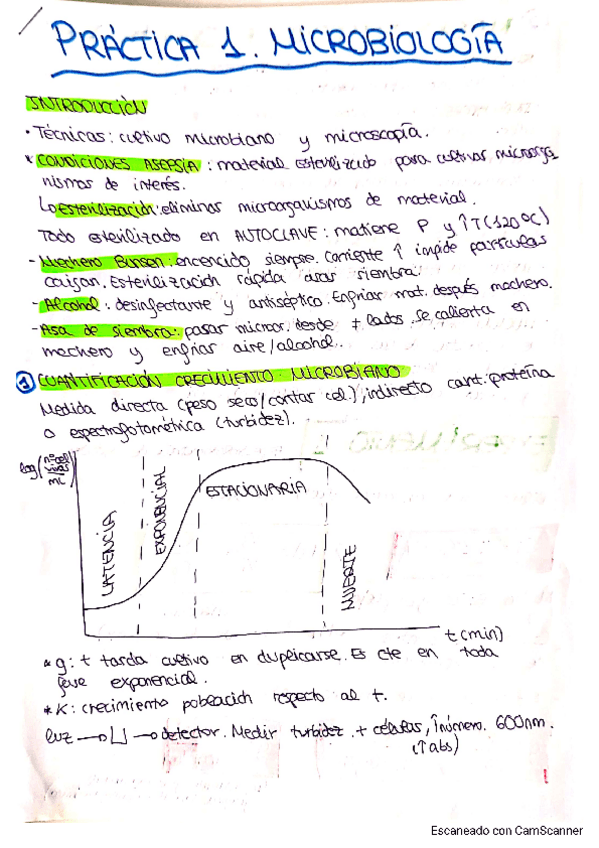 PRÁCTICA 1. MICROBIOLOGÍA
INTRODUCCIÓN
• Técnicas: cultivo microbiano y microscopía.
* CONDICIONES ASEPSIA: material esterilizado para cultivar microorga
nismos de interés.
↳ Esterilización: eliminar microorganismos de material.
Todo esterilizado en AUTOCLAVE: matiene P y ↑T (120ºC)
- Mechero Bunsen: encencido siempre. Corriente ↑ impide partículas
caigan. Esterilización rápida asas siembra.
- Alcohol: desinfectante y antiséptico. Enfriar mat. después mechero.
- Asa de siembra: pasar micror. desde + lados. Se calienta en
mechero y enfriar aire/alcohol.
① CUANTIFICACIÓN CRECIMIENTO MICROBIANO
Medida directa (peso seco/contar cel.), indirecto cant. proteína
o espectrofotométrica (turbidez).
log (nº cel vivas / mL)
LATENCIA
EXPONENCIAL
ESTACIONARIA
MUERTE
t (min)
* g: t tarda cultivo en duplicarse. Es cte en toda
fase exponencial.
* K: crecimiento población respecto al t.
luz → ⊔ → detector. Medir turbidez. + células, ↑número. 600nm.
(↑abs)
Escaneado con CamScanner